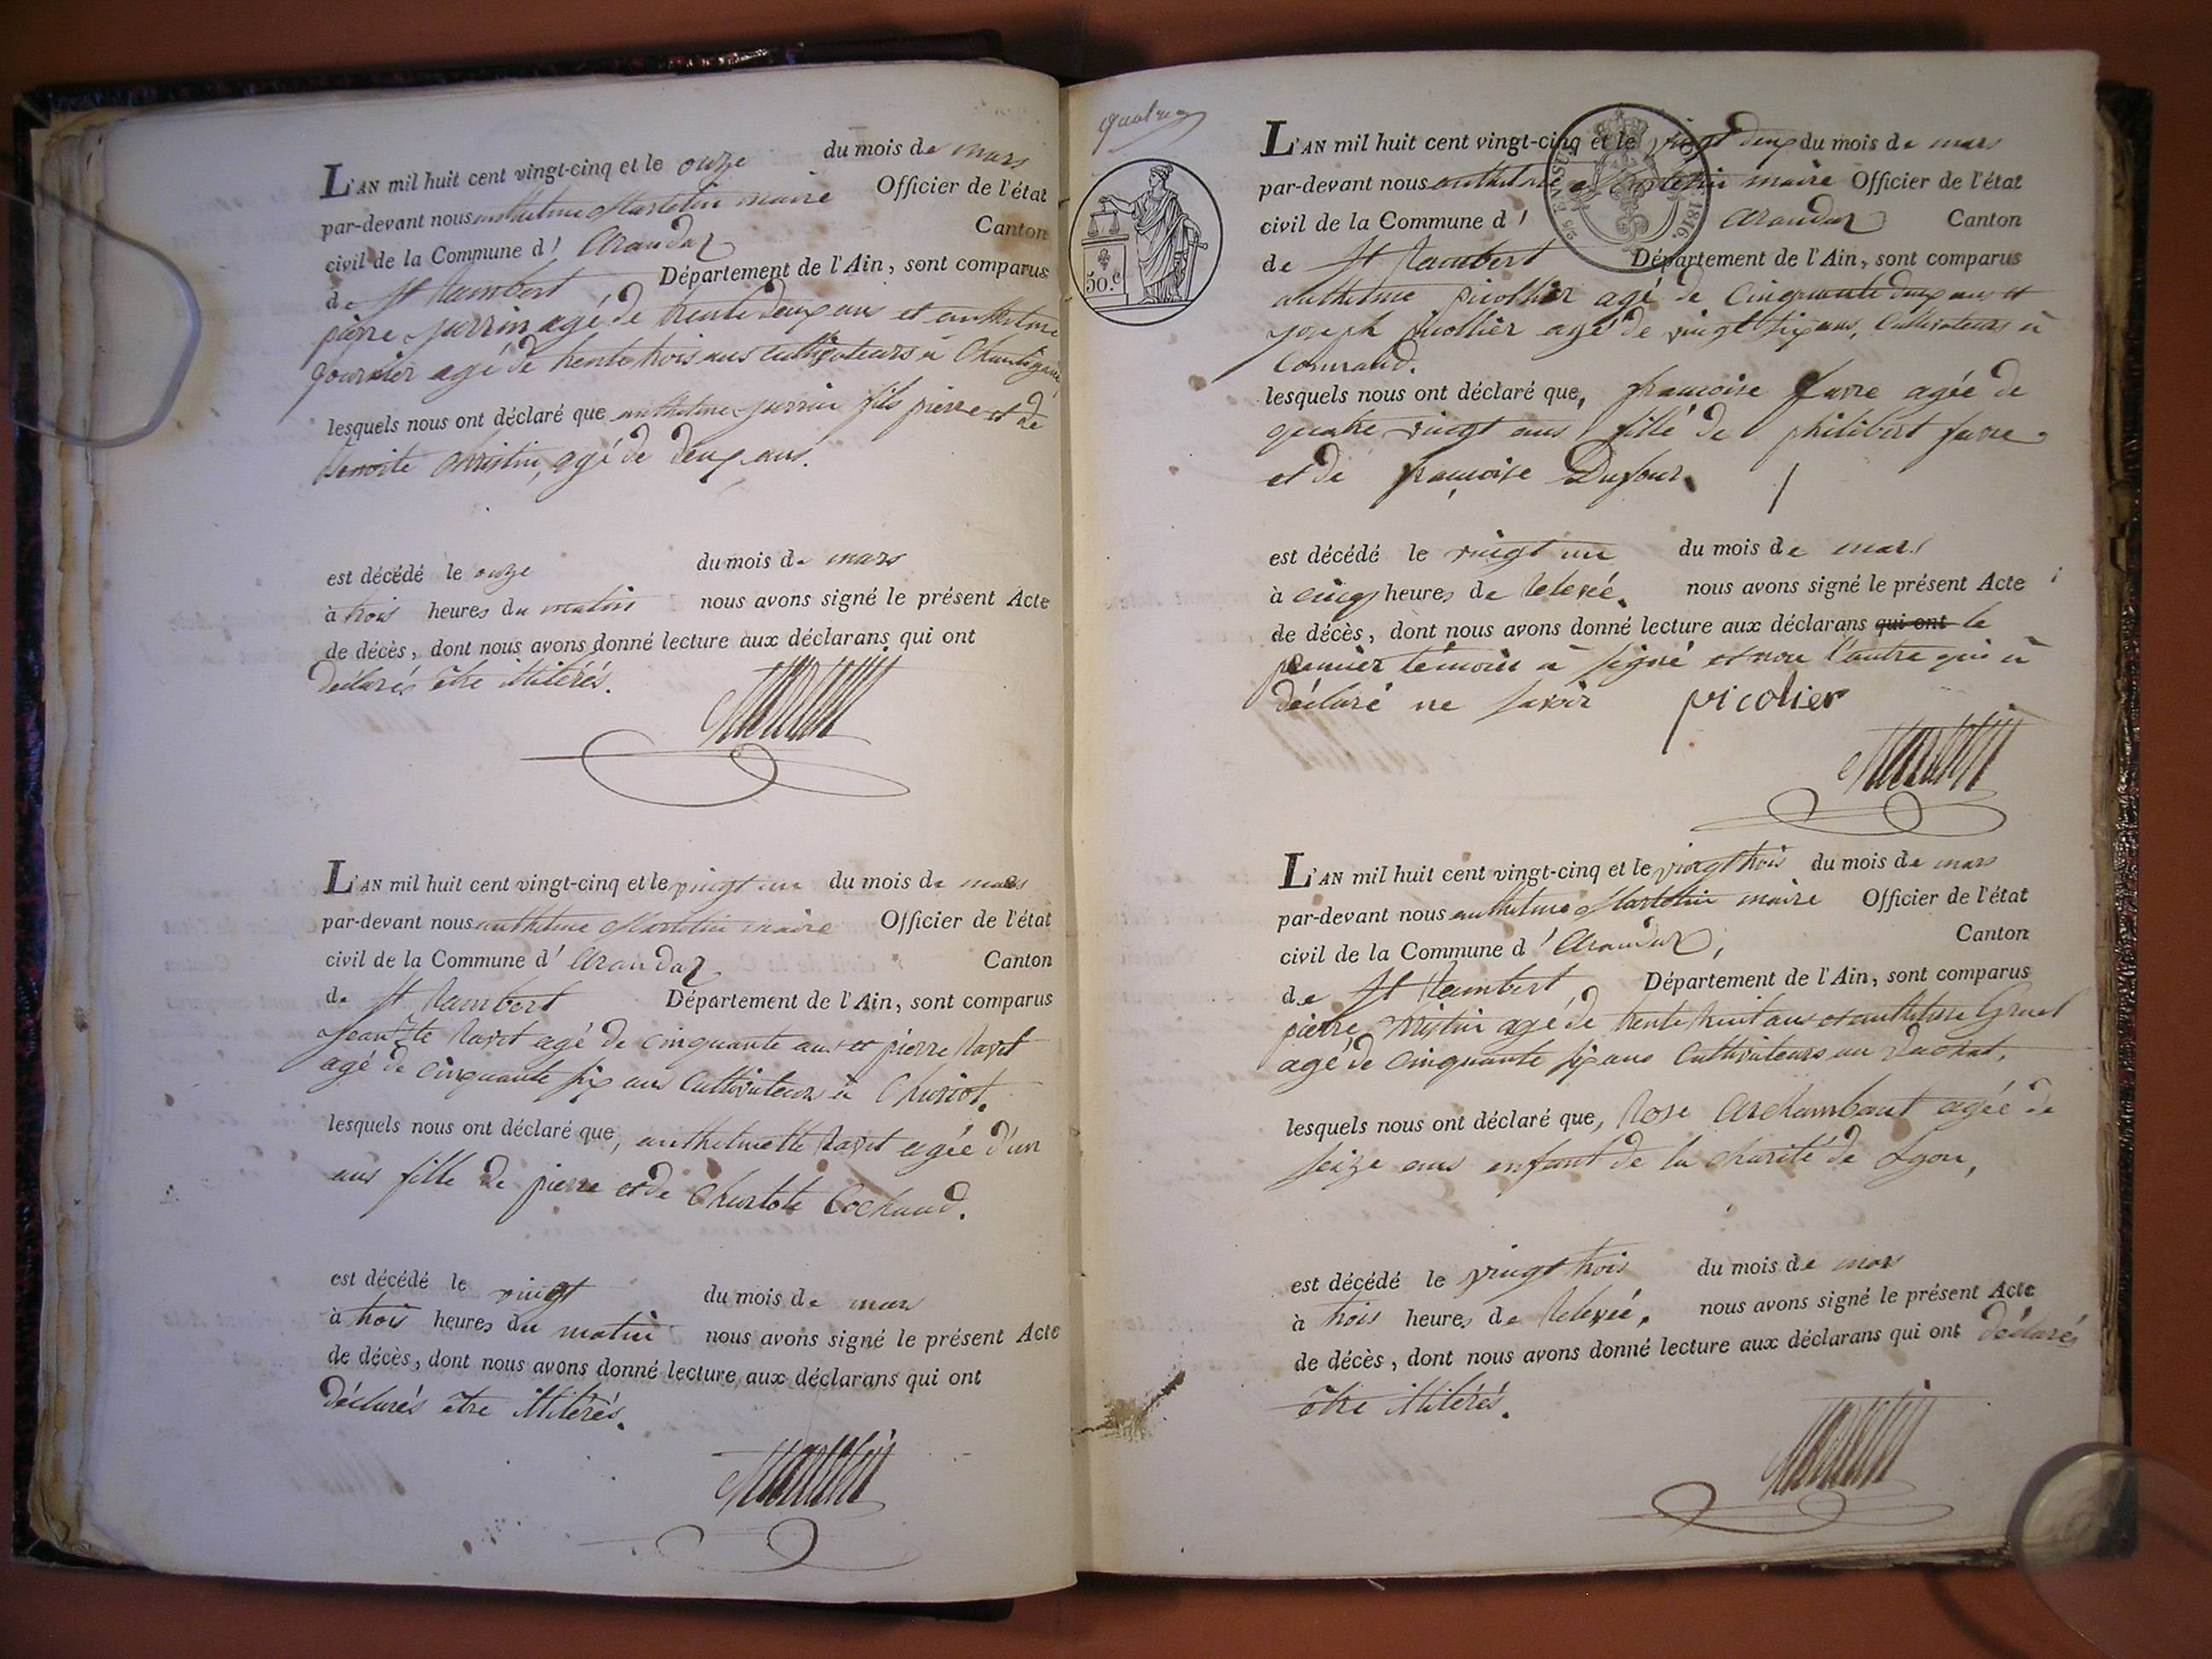 L'AN mil huit cent vingt-cinq et le onze du mois de mars
par-devant nous anthelme Martelin maire Officier de l'état
civil de la Commune d' Arandaz Canton
de St Rambert Département de l'Ain, sont comparus
pierre perrin agé de trente deux ans et anthelme
fournier agé de trente trois ans cultivateurs à
lesquels nous ont déclaré que anthelme perrin fils pierre et de
benoite christin, agé de deux ans.
est décédé le onze du mois de mars
à trois heures du matin nous avons signé le présent Acte
de décès, dont nous avons donné lecture aux déclarans qui ont
déclarés être illitérés.
Martelin
L'AN mil huit cent vingt-cinq et le vingt un du mois de mars
par-devant nous anthelme Martelin maire Officier de l'état
civil de la Commune d' Arandaz Canton
de St Rambert Département de l'Ain, sont comparus
Jean Bte Ravet agé de cinquante ans et pierre Ravet
agé de cinquante six ans cultivateurs à
lesquels nous ont déclaré que, anthelmette Ravet agée d'un
ans fille de pierre et de Charlote Cochaud.
est décédé le vingt du mois de mars
à trois heures du matin nous avons signé le présent Acte
de décès, dont nous avons donné lecture aux déclarans qui ont
déclarés être illitérés.
Martelin
quatre
50.c
L'AN mil huit cent vingt-cinq et le vingt deux du mois de mars
par-devant nous anthelme Martelin maire Officier de l'état
civil de la Commune d' Arandaz Canton
de St Rambert Département de l'Ain, sont comparus
anthelme picollier agé de cinquante deux ans et
joseph picollier agé de vingt six ans, cultivateurs à
Conrand.
lesquels nous ont déclaré que, françoise favre agée de
quatre vingt ans fille de philibert favre
et de françoise Dufour.
est décédé le vingt un du mois de mars
à cinq heures de relevée. nous avons signé le présent Acte
de décès, dont nous avons donné lecture aux déclarans qui ont le
premier témoin à signé et non l'autre qui à
déclaré ne savoir picolier
Martelin
L'AN mil huit cent vingt-cinq et le vingt trois du mois de mars
par-devant nous anthelme Martelin maire Officier de l'état
civil de la Commune d' Arandaz, Canton
de St Rambert Département de l'Ain, sont comparus
pierre christin agé de trente huit ans et anthelme Gruet
agé de cinquante six ans cultivateurs au
lesquels nous ont déclaré que, Rose Archambaut agée de
seize ans enfant de la charité de Lyon,
est décédé le vingt trois du mois de mars
à trois heures de relevée. nous avons signé le présent Acte
de décès, dont nous avons donné lecture aux déclarans qui ont déclarés
être illitérés.
Martelin